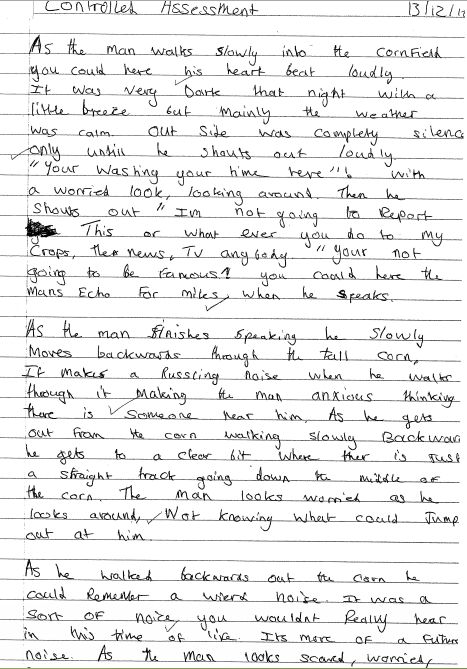 Controlled Assessment 13/12/1
As the man walks slowly into the cornfield
you could here his heart beat loudly.
It was very Dark that night with a
little breeze but mainly the weather
was calm. Out side was completly silence
only untill he shouts out loudly
"Your washing your time here"! with
a worried look, looking around. Then he
shouts out "Im not going to Report
This or what ever you do to my
Crops, the news, TV anybody. "Your not
going to be famous! you could here the
mans Echo for miles, when he speaks.
As the man finishes speaking he slowly
moves backwards through the tall corn,
It makes a Russling noise when he walks
through it making the man anxious thinking
there is someone near him. As he gets
out from the corn walking slowly Backwar
he gets to a clear bit where ther is Just
a straight track going down the middle of
the corn. The man looks worried as he
looks around, Not knowing what could Jump
out at him.
As he walked backwards out the corn he
could Remember a wierd noise. It was a
sort of noice, you wouldnt Really hear
in this time of life. Its more of a Future
noise. As the man looks scared, worried,